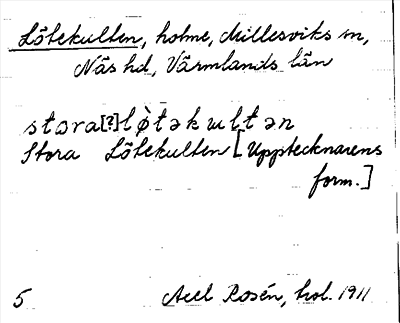 Lötekulten, holme, Millesviks sn,
Näs hd, Värmlands län
stora[?]lø̀təkultən
Stora Lötekulten [Upptecknarens
form.]
5 Axel Rosén, hol. 1911